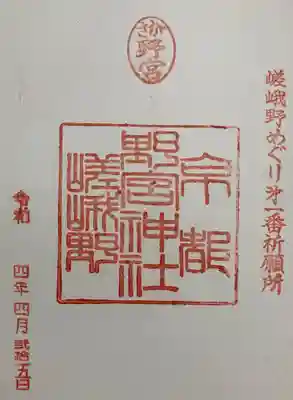 野宮
嵯峨野めぐり第一番祈願所
京都
野宮神社
嵯峨野
令和 四年四月弐拾五日